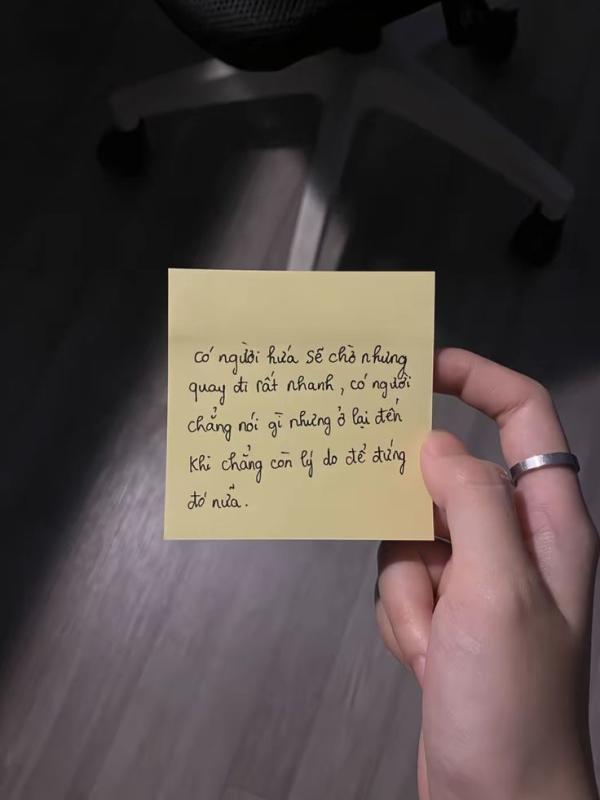 có người hứa sẽ chờ nhưng
quay đi rất nhanh, có người
chẳng nói gì nhưng ở lại đến
khi chẳng còn lý do để đứng
đó nữa.